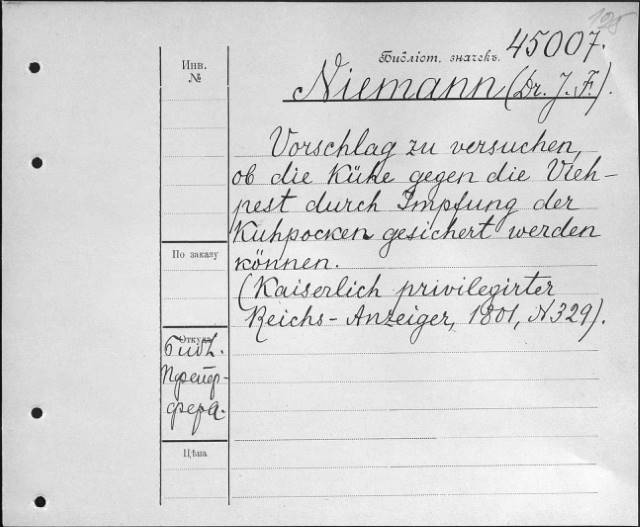 125
Библіот. значекъ. 45007.
Инв.
№
Niemann (Dr. J. F.).
Vorschlag zu versuchen,
ob die Kühe gegen die Vieh-
pest durch Impfung der
Kuhpocken gesichert werden
können.
(Kaiserlich privilegirter
Reichs-Anzeiger, 1801, N 329).
По заказу
Откуда
Библ.
Пфейф-
фера.
Цѣна